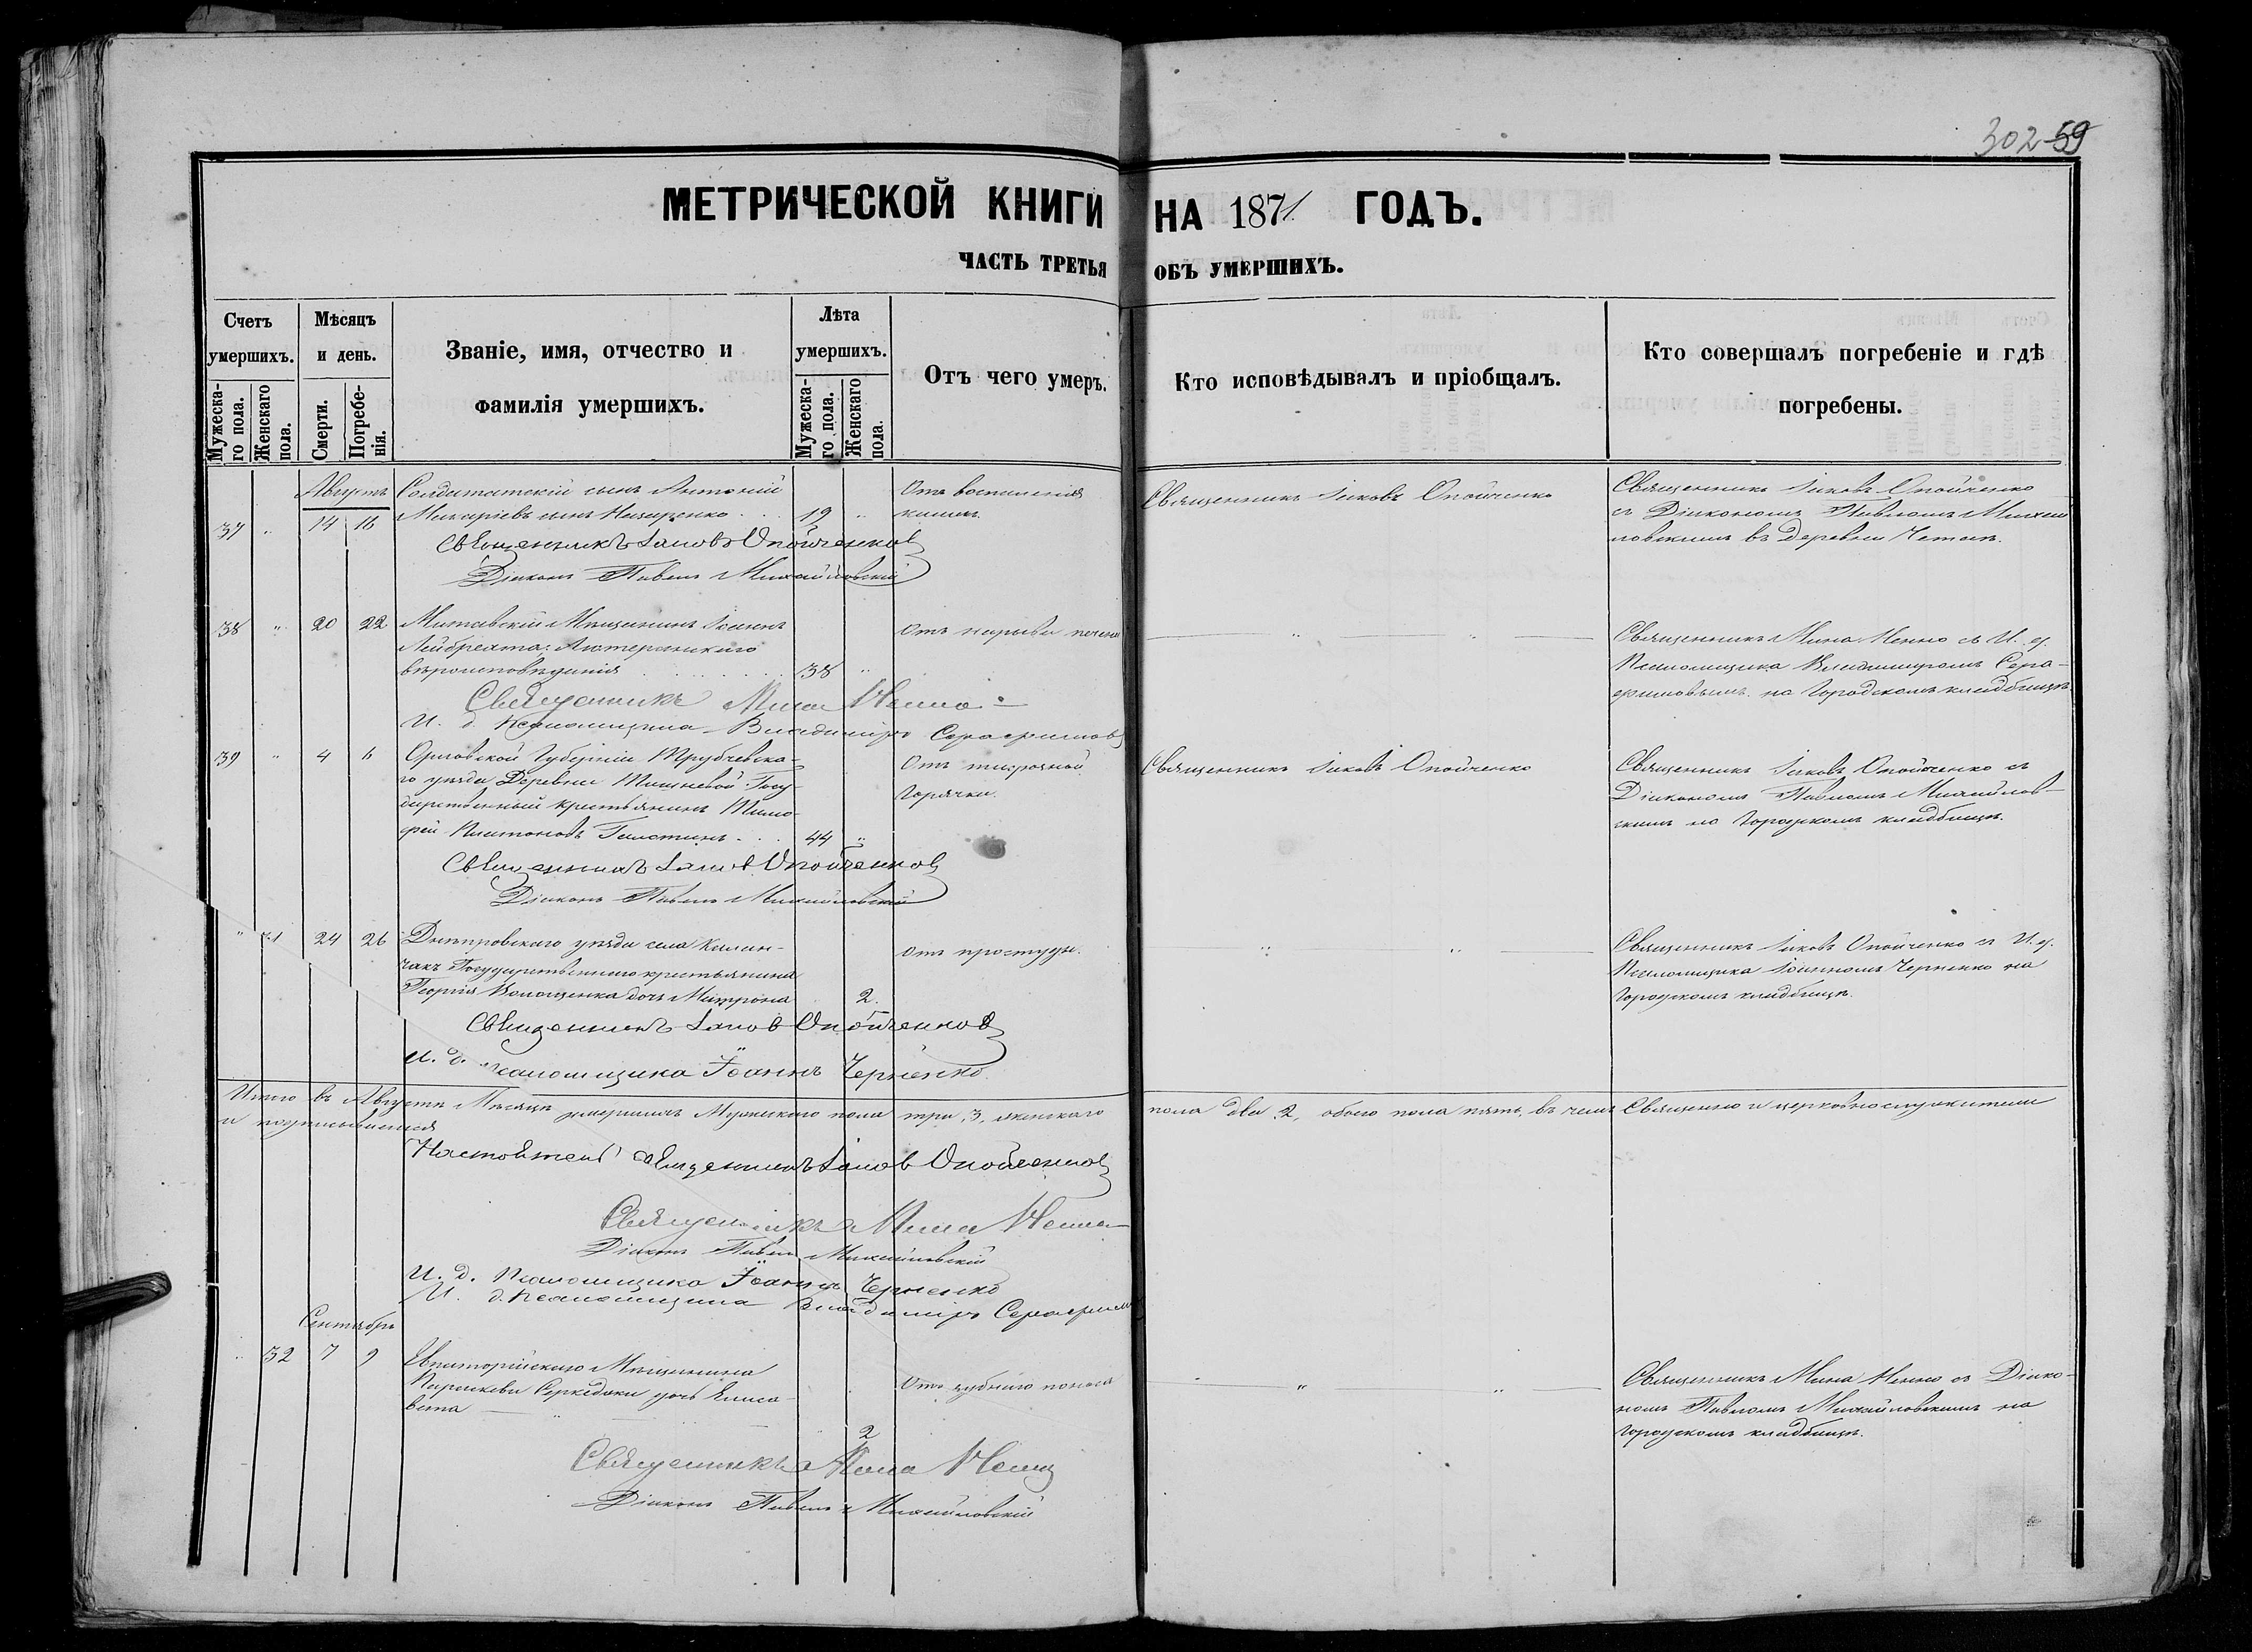 302 59
МЕТРИЧЕСКОЙ КНИГИ НА 1871 ГОДЪ.
ЧАСТЬ ТРЕТЬЯ ОБЪ УМЕРШИХЪ.
Счетъ умершихъ.
Мужеска-го пола.
Женскаго пола.
Мѣсяцъ и день.
Смерти.
Погребе-нія.
Званіе, имя, отчество и фамилія умершихъ.
Лѣта умершихъ.
Мужеска-го пола.
Женскаго пола.
Отъ чего умеръ.
Кто исповѣдывалъ и пріобщалъ.
Кто совершалъ погребеніе и гдѣ погребены.
Августъ
37 " 14 16
Солдатскій сынъ Антоній
сынъ Назаренко 19 "
Отъ воспаленія
кишекъ.
Священникъ Іаковъ Опойченко
Священникъ Іаковъ Опойченко
съ Діакономъ Павломъ Михай
ловскимъ въ деревни
Священникъ Іаковъ Опойченков
Діаконъ Павелъ Михайловскій
38 " 20 22
Митавскій Мѣщанинъ Іоаннъ
Лейбрехтъ, Лютеранскаго
вѣроисповѣданія 38 "
Отъ нарыва печени
Священникъ Мина Ненно съ И. д.
Псаломщика Владимиромъ Сера-
фимовымъ на Городскомъ кладбищѣ
Священникъ Мина Ненно
И. д. Псаломщика Владиміръ Серафимовъ
39 " 4 6
Орловской Губерніи Трубчевска-
го уѣзда Деревни Госу-
дарственный крестьянинъ Тимо-
фей Платоновъ 44 "
Отъ тифозной
Горячки.
Священникъ Іаковъ Опойченко
Священникъ Іаковъ Опойченко съ
Діакономъ Павломъ Михайлов-
скимъ на Городскомъ кладбищѣ.
Священникъ Іаков Опойченков
Діаконъ Павелъ Михайловскій
" 31 24 26
Днѣпровскаго уѣзда села Калан-
чакъ Государственнаго крестьянина
Георгія Волощенка дочь Матрона 2.
отъ простуды.
Священникъ Іаковъ Опойченко съ И. д.
Псаломщика Іоанномъ Черненко на
Городскомъ кладбищѣ.
Священникъ Іаков Опойченков
И. д. Псаломщика Іоаннъ Черненко
Итого въ Августѣ Мѣсяцѣ умершихъ Мужескаго пола три, 3, женскаго пола два 2, обоего пола пять, въ чемъ Священно и церковнослужители
и подписываемся
Настоятель Священникъ Іаков Опойченков
Священникъ Мина Ненно
Діаконъ Павелъ Михайловскій
И. д. Псаломщика Іоаннъ Черненко
И. д. Псаломщика Владиміръ
Сентябрь
" 32 7 9
Евпаторійскаго Мѣщанина
дочь Елиса-
вета 2
Отъ зубнаго поноса
Священникъ Мина Ненно съ Діако-
номъ Павломъ Михайловскимъ на
Городскомъ кладбищѣ.
Священникъ Мина Ненно
Діаконъ Павелъ Михайловскій